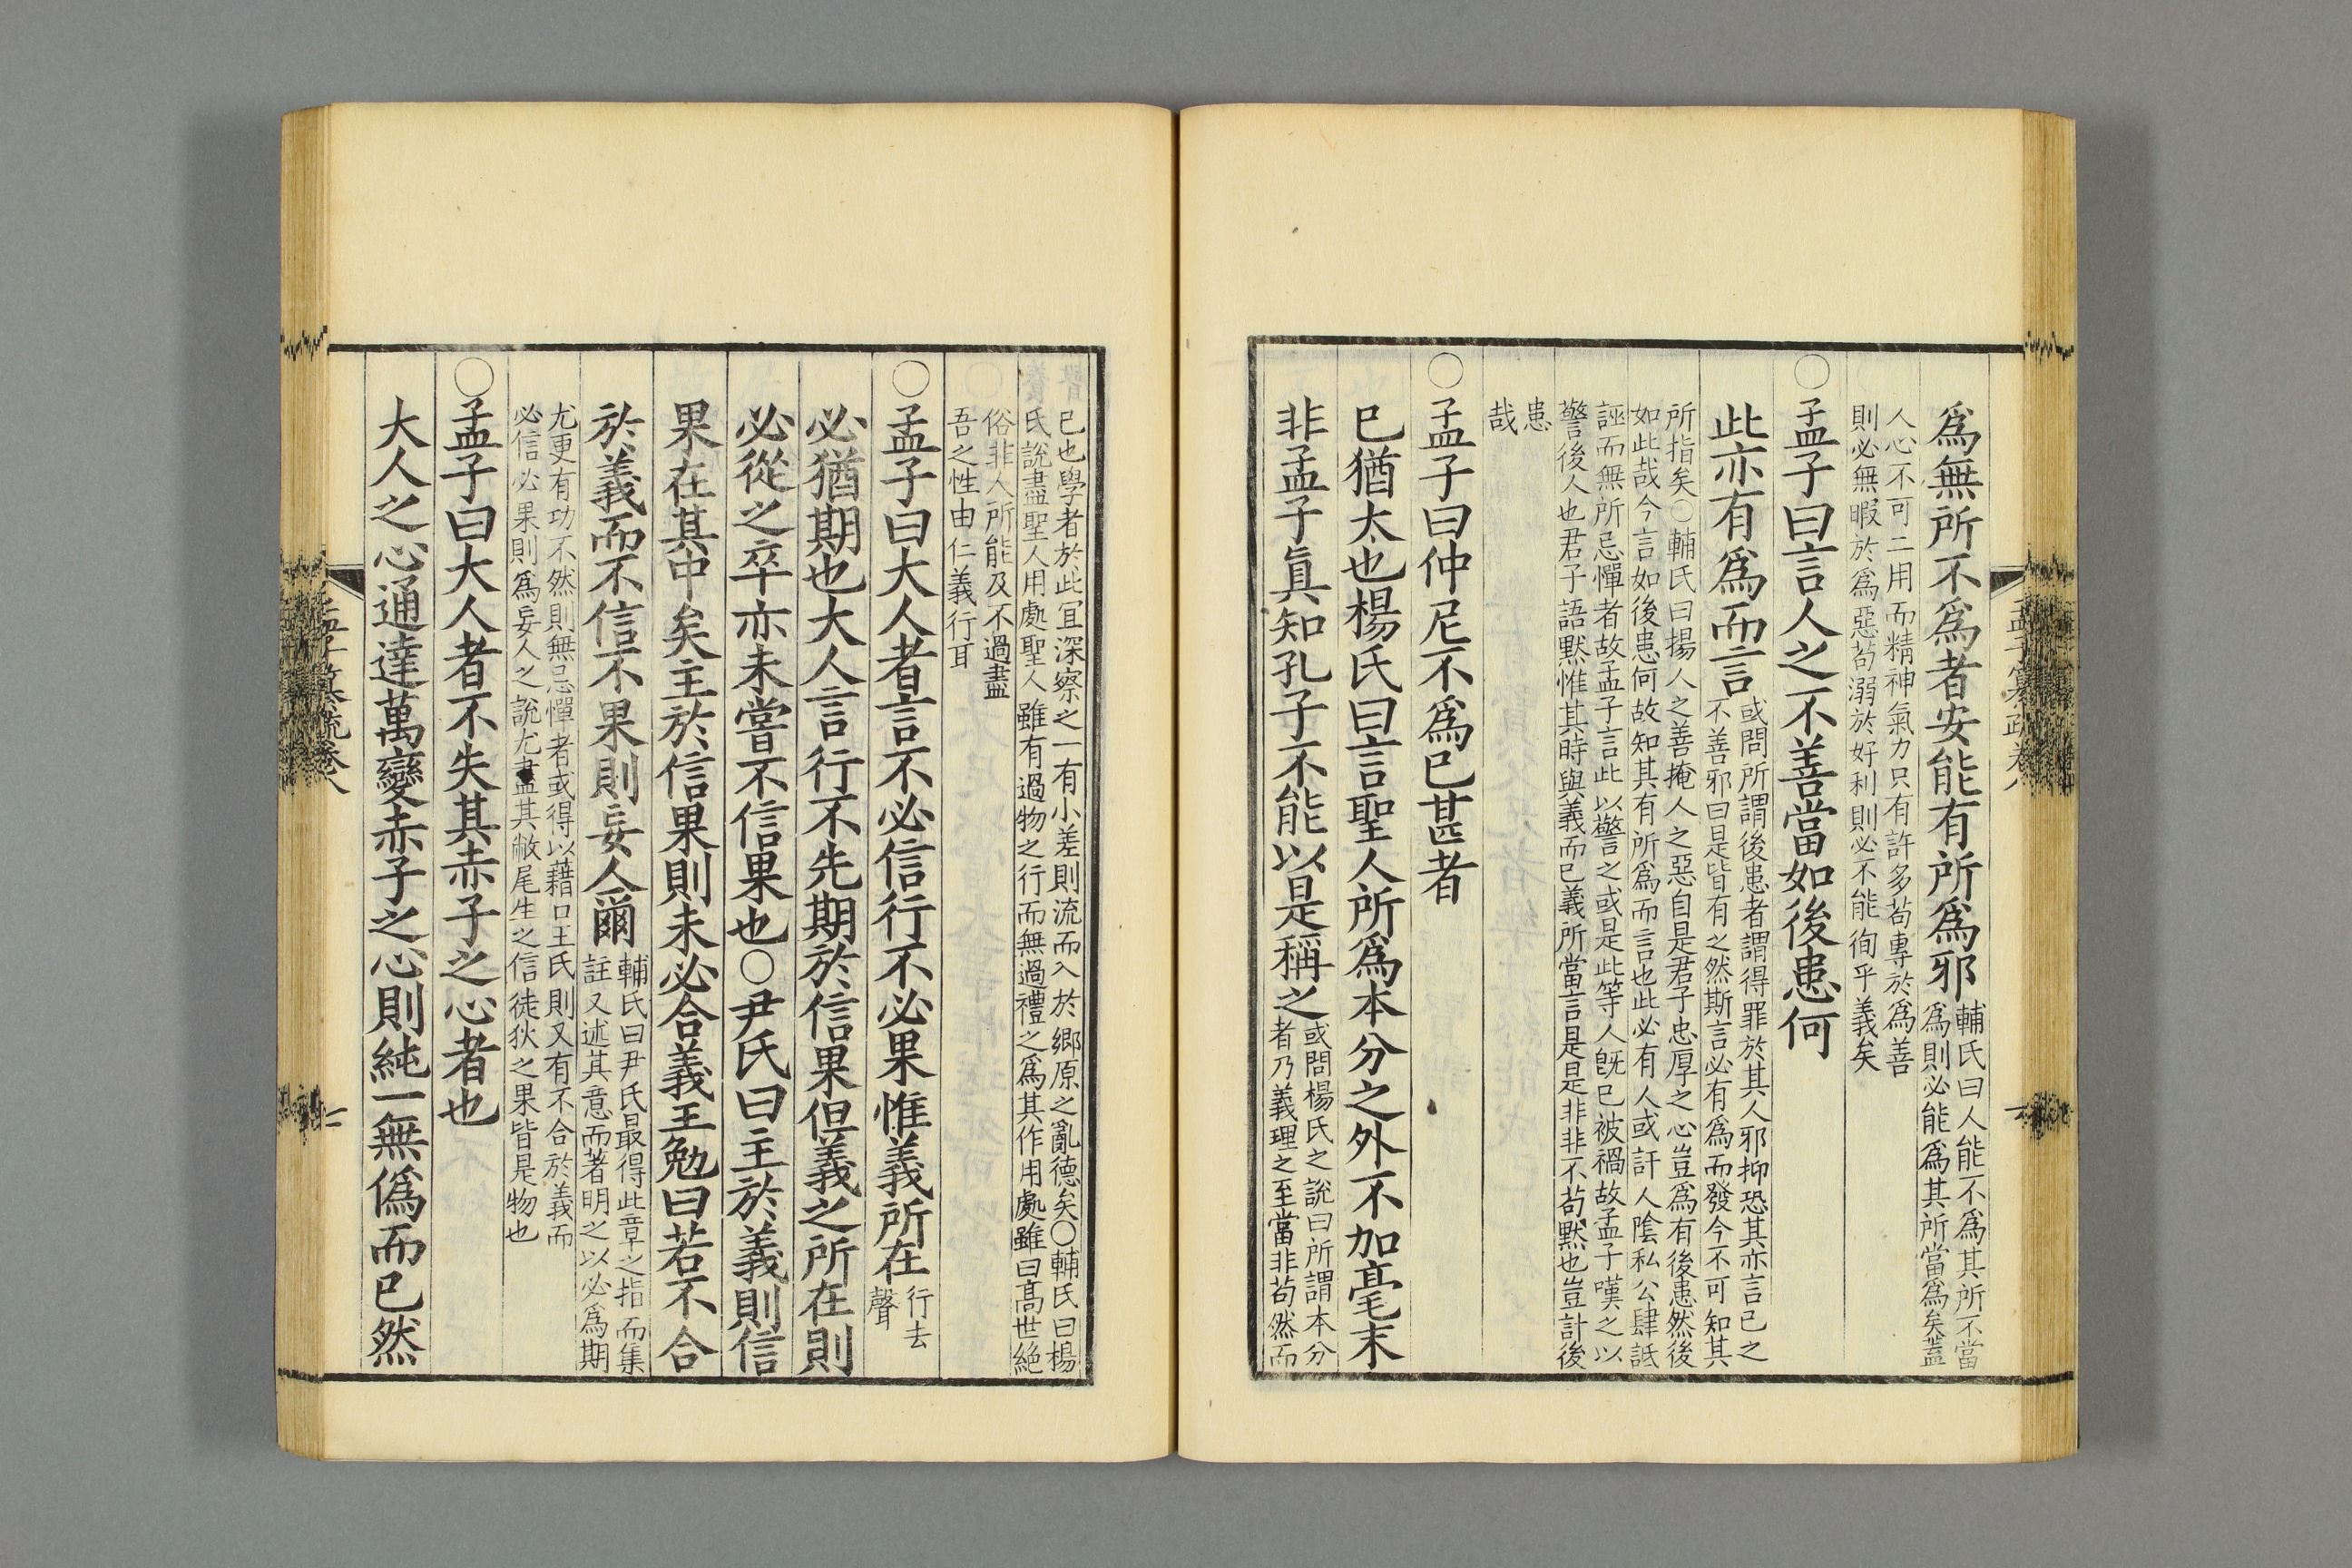 爲無所不爲者安能有所爲邪輔氏曰人能不爲其所不當
爲則必能爲其所當爲矣蓋
人心不可二用而精神氣力只有許多苟專於爲善
則必無暇於爲惡苟溺於好利則必不能徇乎義矣
○孟子曰言人之不善當如後患何
此亦有爲而言或問所謂後患者謂得罪於其人邪抑恐其亦言己之
不善邪曰是皆有之然斯言必有爲而發今不可知其
所指矣○輔氏曰揚人之善掩人之惡自是君子忠厚之心豈爲有後患然後
如此哉今言如後患何故知其有所爲而言也此必有人或訐人陰私公肆詆
誣而無所忌憚者故孟子言此以警之或是此等人旣已被禍故孟子嘆之以
警後人也君子語默惟其時與義而已義所當言是是非非不苟默也豈計後
患
哉
○孟子曰仲尼不爲已甚者
已猶太也楊氏曰言聖人所爲本分之外不加毫末
非孟子眞知孔子不能以是稱之或問楊氏之說曰所謂本分
者乃義理之至當非苟然而
已也學者於此宜深察之一有小差則流而入於鄉原之亂德矣○輔氏曰楊
氏說盡聖人用處聖人雖有過物之行而無過禮之爲其作用處雖曰髙世絕
俗非人所能及不過盡
吾之性由仁義行耳
○孟子曰大人者言不必信行不必果惟義所在行去
聲
必猶期也大人言行不先期於信果但義之所在則
必從之卒亦未嘗不信果也○尹氏曰主於義則信
果在其中矣主於信果則未必合義王勉曰若不合
於義而不信不果則妄人爾輔氏曰尹氏最得此章之指而集
註又述其意而著明之以必爲期
尤更有功不然則無忌憚者或得以藉口王氏則又有不合於義而
必信必果則爲妄人之說尤盡其敝尾生之信徒狄之果皆是物也
○孟子曰大人者不失其赤子之心者也
大人之心通達萬變赤子之心則純一無僞而已然
孟子纂疏卷八